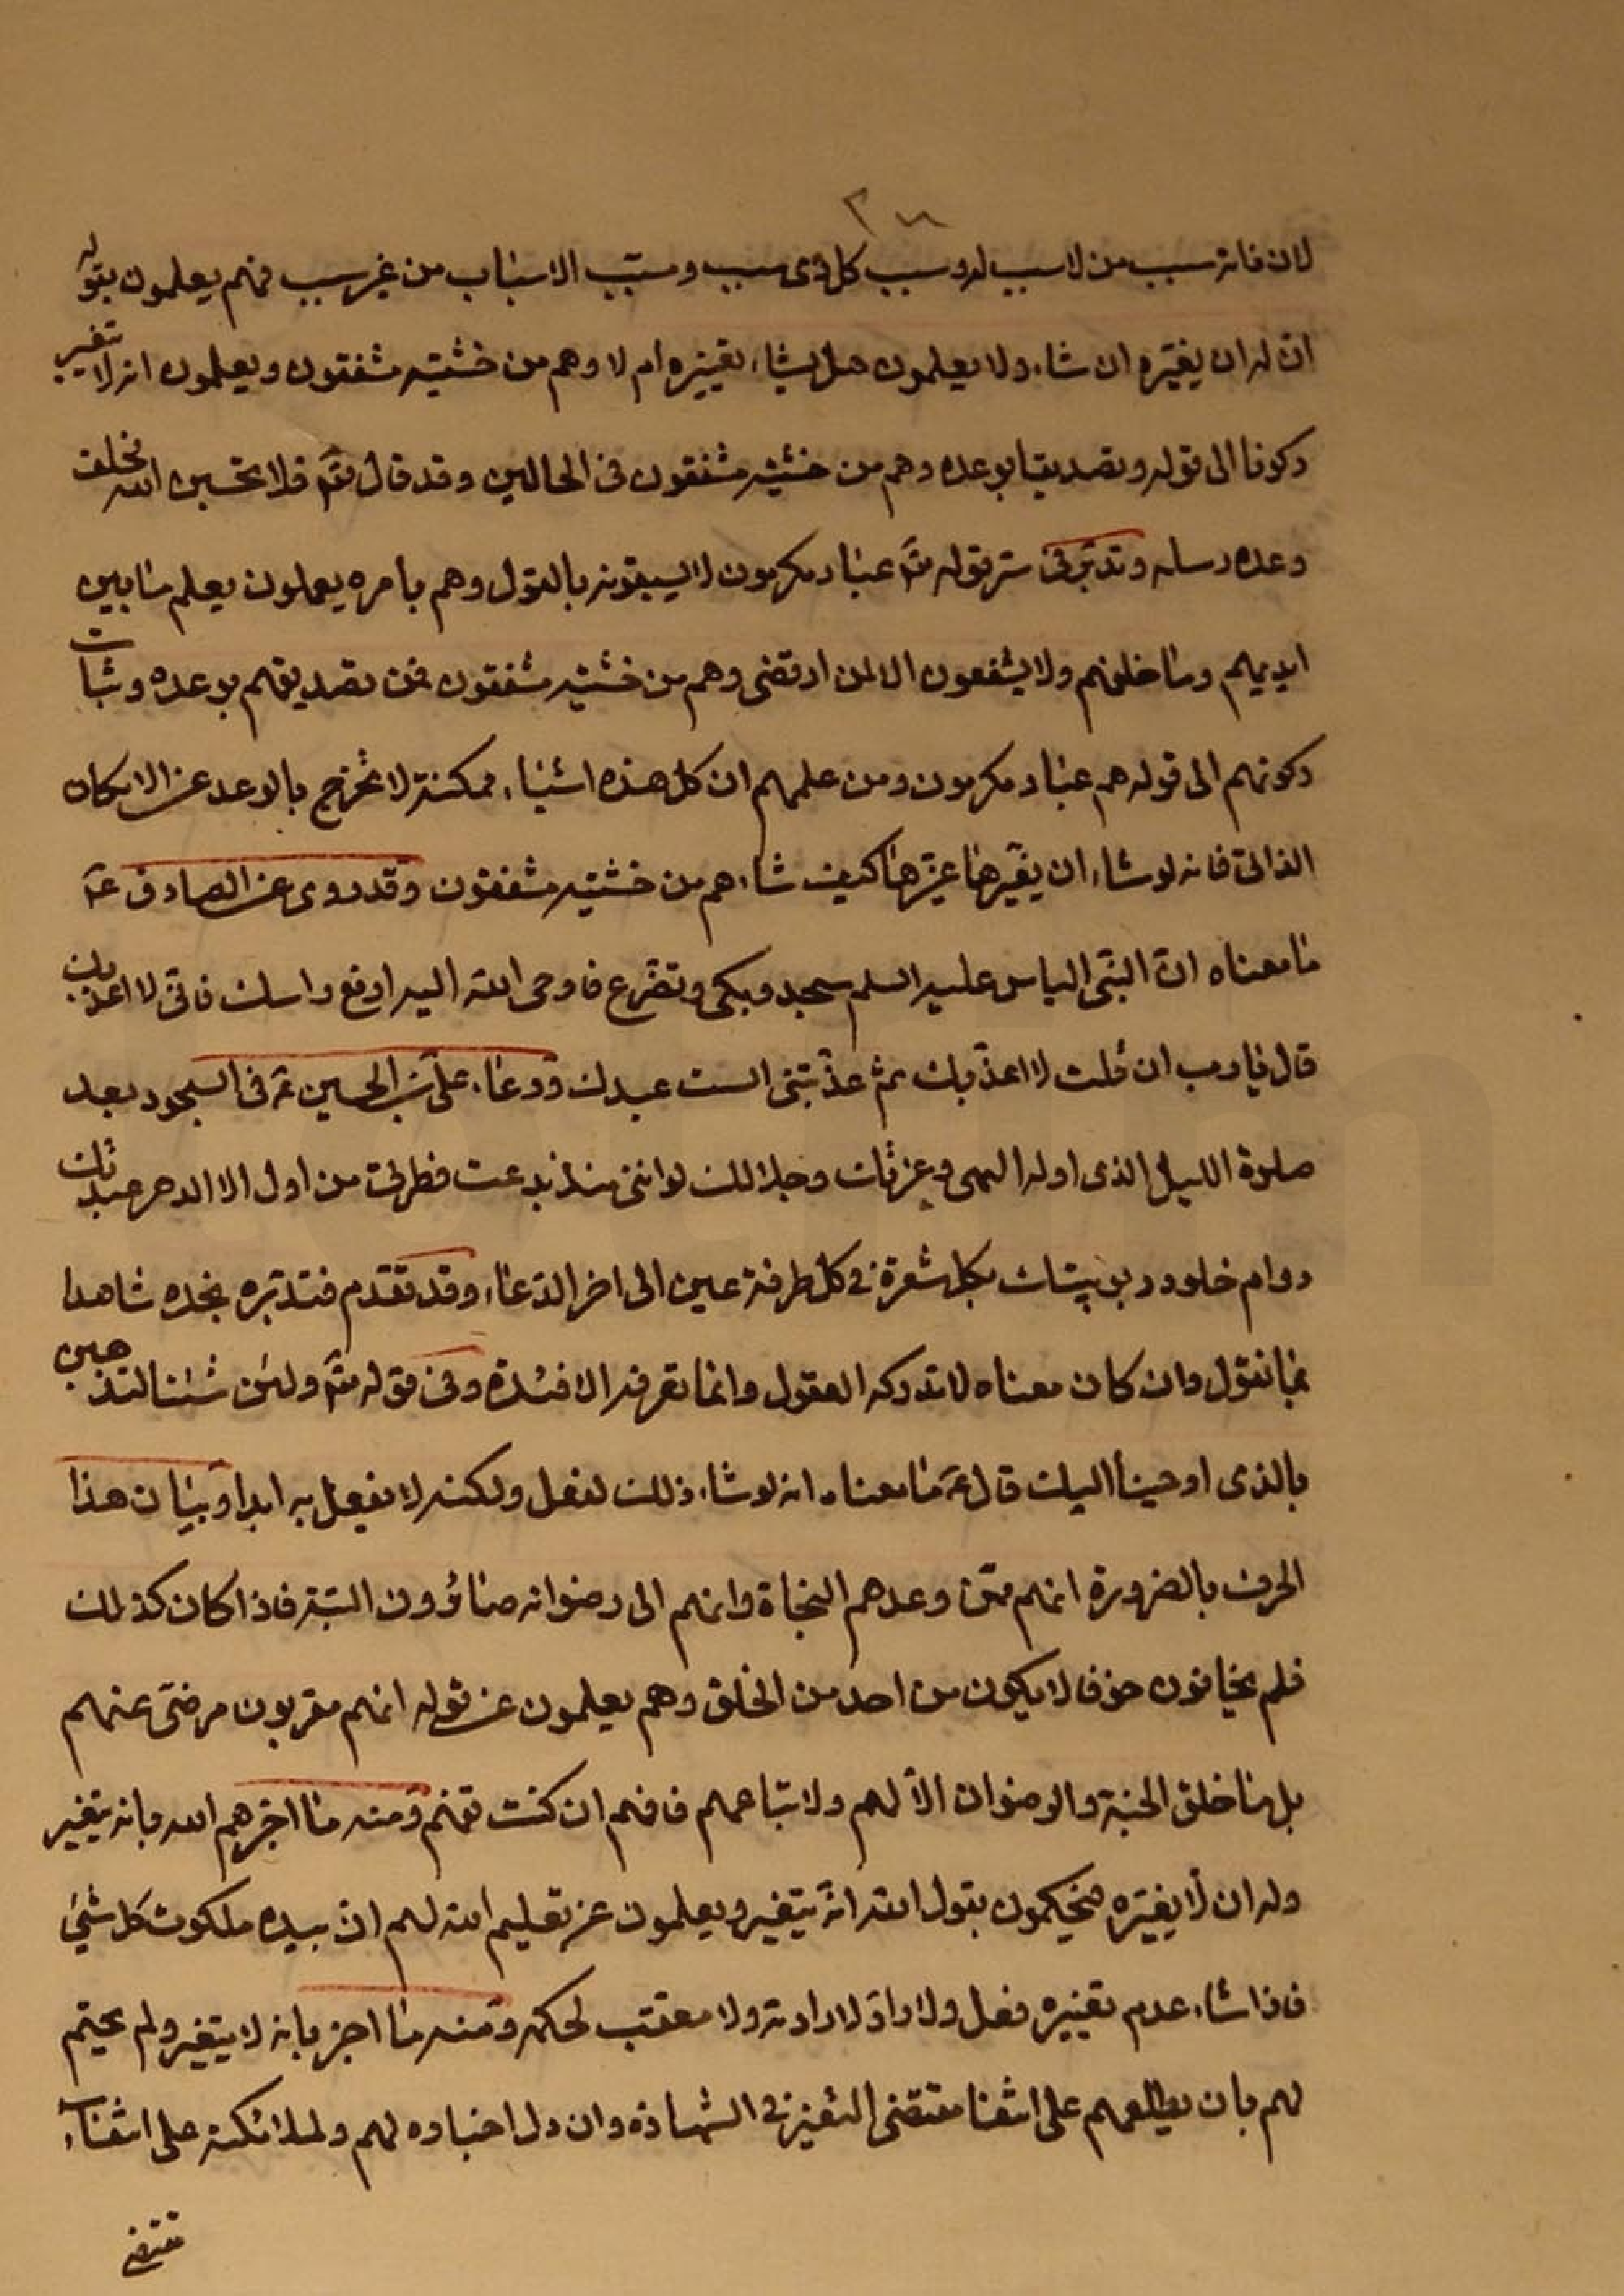 لان فانه سبب من لا سبب له وسبب كل ذى سبب ومسبّب الاسباب من غير سبب فهم يعلمون بقوله
انّ له ان يغيّره ان شاء ولا يعلمون هل يشاء تغييره ام لا وهم من خشيته مشفقون ويعلمون انه لا تغير
ركونا الى قوله وتصديقا بوعده وهم من خشيته مشفقون فى الحالين وقد قال تعٓ فلا تحسبن الله مخلف
وعده رسله وتدبّر فى سرّ قوله تعٓ عباد مكرمون لا يسبقونه بالقول وهم بامره يعملون يعلم ما بين
ايديهم وما خلفهم ولا يشفعون الا لمن ارتضى وهم من خشيته مشفقون فمن تصديقهم بوعده وثبات
ركونهم الى قوله هم عباد مكرمون ومن علمهم ان كل هذه اشياء ممكنة لا تخرج بالوعد عن الامكان
الذاتى فانه لو شاء ان يغيّرها غيّرها كيف شاء هم من خشيته مشفقون وقد روى عن الصادق عٓ
ما معناه انّ النبّى الياس عليه السلم سجد وبكى وتضرّع فاوحى الله اليه ارفع راسك فانّى لا اعذبك
قال يا رب ان قلت لا اعذّبك ثم عذّبتنى الست عبدك ودعاء علىّ بن الحسين عٓ فى السجود بعد
صلوة الليل الذى اوله الهى وعزتك وجلالك لو اننى منذ بدعت فطرتى من اول الدهر عبدتك
دوام خلود ربوبيتك بكل شعرة فى كل طرفة عين الى اخر الدّعاء وقد تقدم فتدبّره تجده شاهدا
بما نقول وان كان معناه لا تدركه العقول وانما تعرفه الافئدة وفى قوله تعٓ ولئن شئنا لنذهبن
بالذى اوحينا اليك قال عٓ ما معناه انه لو شاء ذلك لفعل ولكنه لا يفعل به ابدا وبيان هذا
الحرف بالضرورة انهم ممّن وعدهم النجاة وانهم الى رضوانه صائرون البتة فاذا كان كذلك
فلم يخافون خوفا لا يكون من احد من الخلق وهم يعلمون عن قوله انهم مقربون مرضى عنهم
بل ما خلق الجنة والرضوان الّا لهم ولاتباعهم فافهم ان كنت تفهم ومنه ما اخبرهم الله بانه يتغير
وله ان لا يغيّره فيحكمون بقول الله انّه يتغير ويعلمون عن تعليم الله لهم انّ بيده ملكوت كل شئ
فاذا شاء عدم تغييره فعل ولا رادّ لارادته ولا معقب لحكمه ومنه ما اخبر بانه لا يتغير ولم يحتم
لهم بان يطلعهم على انتفا مقتضى التغيير فى الشهادة وان دل اخباره لهم وللملائكة على انتفاء